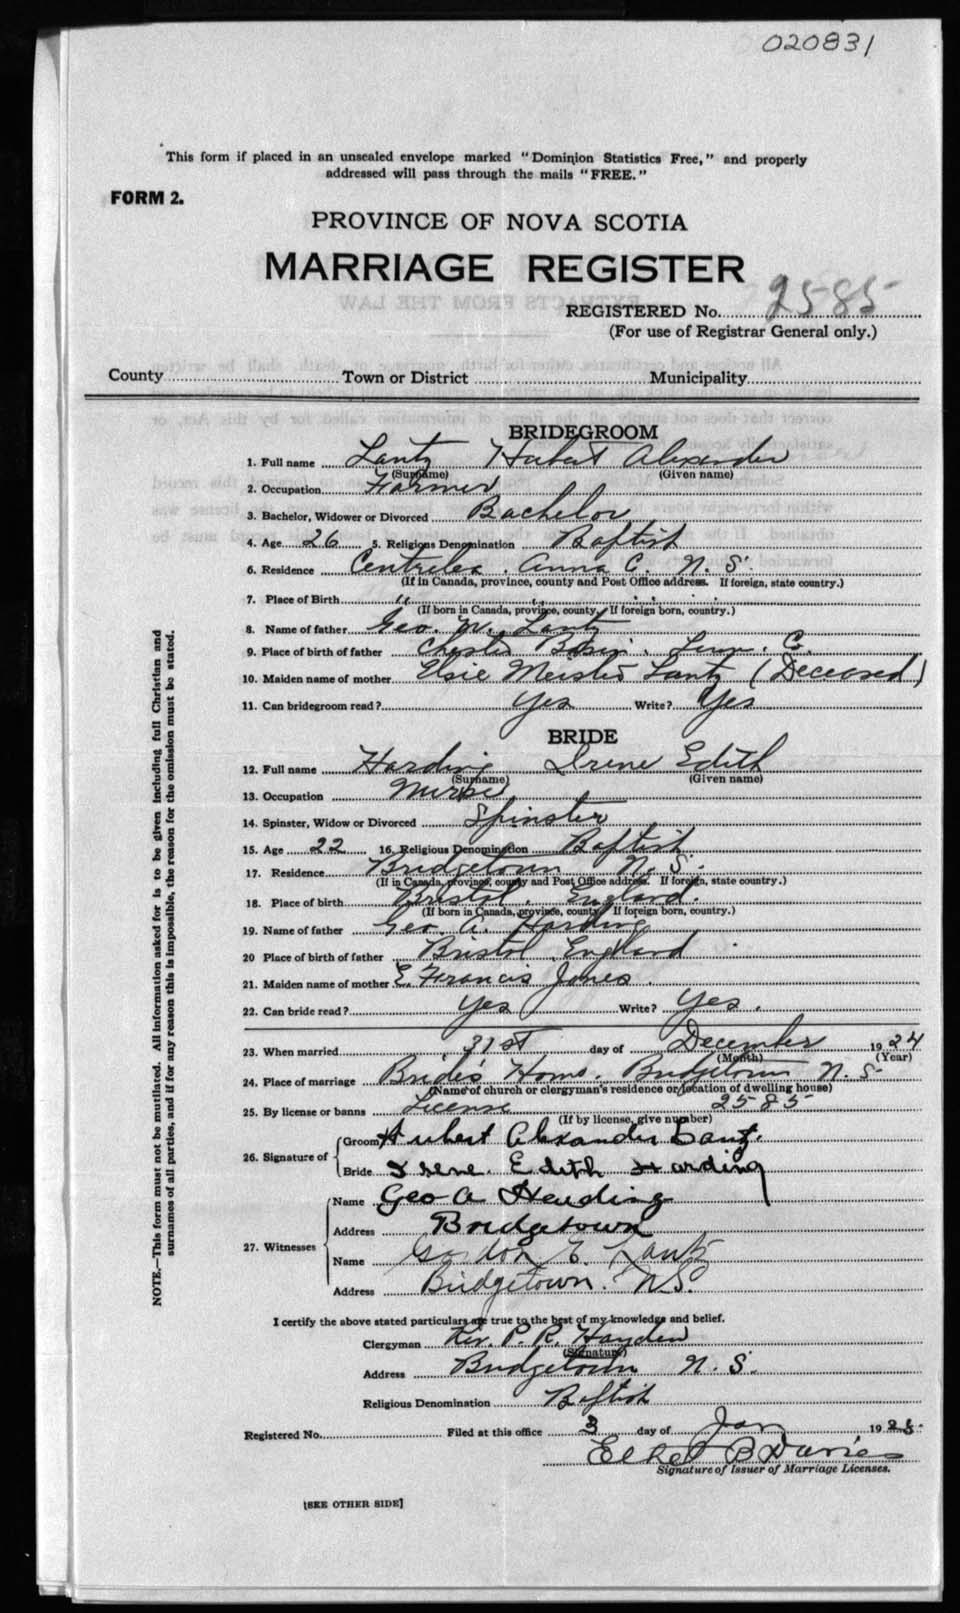 020831
This form if placed in an unsealed envelope marked "Dominion Statistics Free," and properly
addressed will pass through the mails "FREE."
FORM 2.
PROVINCE OF NOVA SCOTIA
MARRIAGE REGISTER
REGISTERED No. 2585
(For use of Registrar General only.)
County Town or District Municipality
BRIDEGROOM
1. Full name Lantz Hubert Alexander
(Surname) (Given name)
2. Occupation Farmer
3. Bachelor, Widower or Divorced Bachelor
4. Age 26 5. Religious Denomination Baptist
6. Residence Centrelea. Anna C. N. S.
(If in Canada, province, county and Post Office address. If foreign, state country.)
7. Place of Birth " " " "
(If born in Canada, province, county. If foreign born, country.)
8. Name of father Geo. W. Lantz
9. Place of birth of father Chester Basin. Lun. C.
10. Maiden name of mother Elsie Meister Lantz (Deceased)
11. Can bridegroom read? Yes Write? Yes
BRIDE
12. Full name Harding Irene Edith
(Surname) (Given name)
13. Occupation Nurse
14. Spinster, Widow or Divorced Spinster
15. Age 22 16. Religious Denomination Baptist
17. Residence Bridgetown N. S.
(If in Canada, province, county and Post Office address. If foreign, state country.)
18. Place of birth Bristol. England.
(If born in Canada, province, county. If foreign born, country.)
19. Name of father Geo. A. Harding
20 Place of birth of father Bristol England
21. Maiden name of mother E. Francis Jones.
22. Can bride read? Yes Write? Yes.
23. When married 31st day of December 1924
(Month) (Year)
24. Place of marriage Bride's Home. Bridgetown N. S.
(Name of church or clergyman's residence or location of dwelling house)
25. By license or banns License 2585
(If by license, give number)
26. Signature of Groom Hubert Alexander Lantz.
Bride Irene Edith Harding
27. Witnesses Name Geo A Harding
Address Bridgetown
Name Gordon E. Lantz
Address Bridgetown. N.S.
I certify the above stated particulars are true to the best of my knowledge and belief.
Clergyman Rev. P. R. Hayden
(Signature)
Address Bridgetown N. S.
Religious Denomination Baptist
Registered No. Filed at this office 3 day of Jan 1925.
B Davies
Signature of Issuer of Marriage Licenses.
[SEE OTHER SIDE]
NOTE.—This form must not be mutilated. All information asked for is to be given including full Christian and
surnames of all parties, and if for any reason this is impossible, the reason for the omission must be stated.